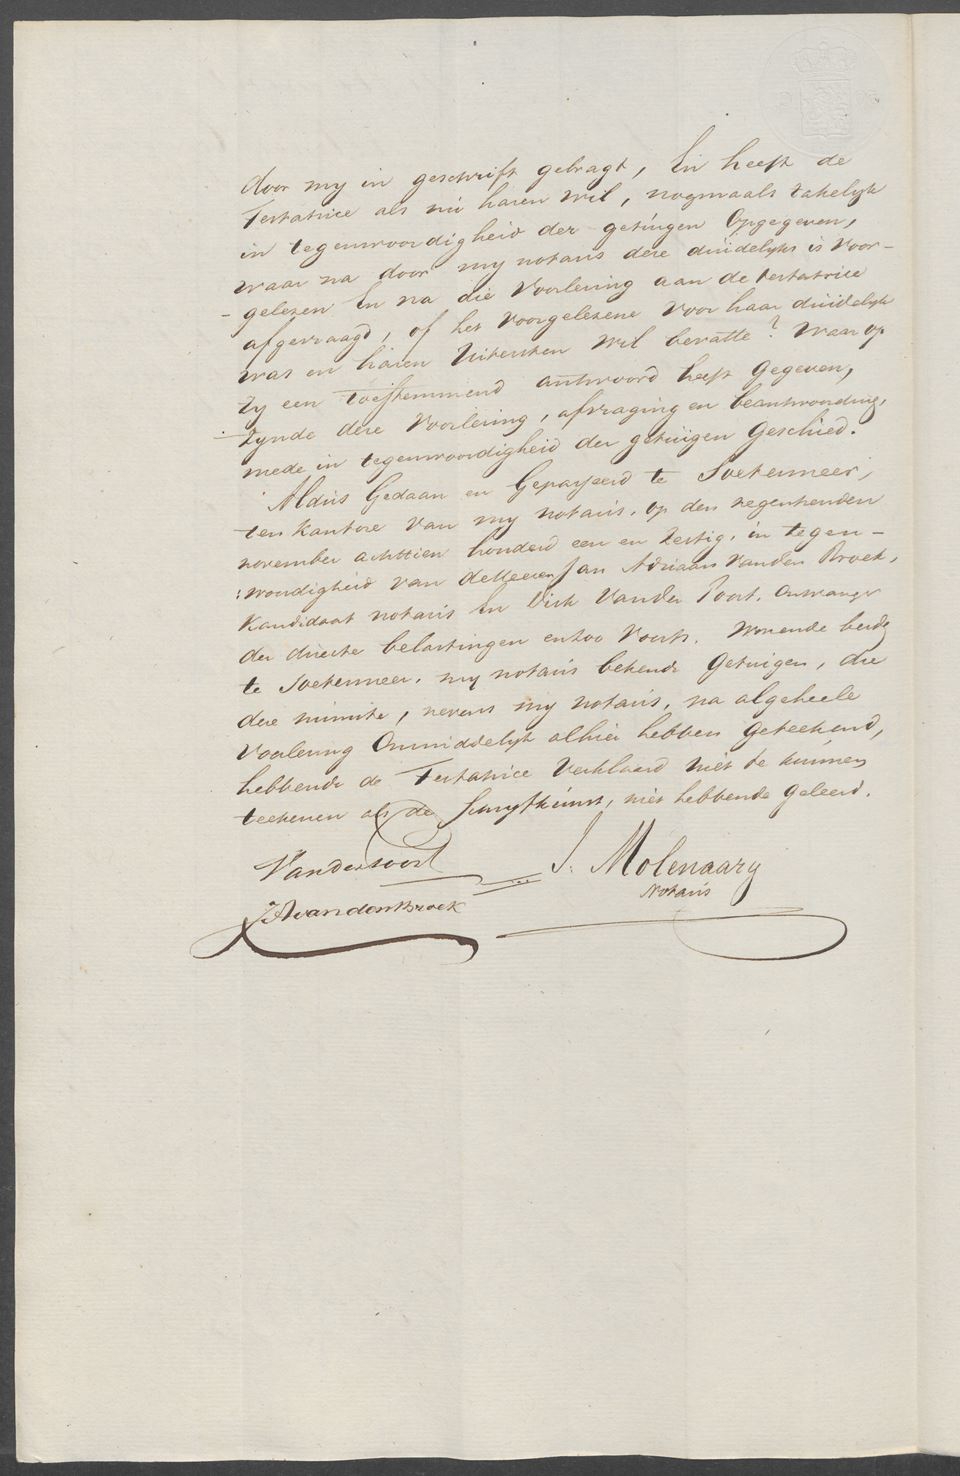 door my in geschrift gebragt, En heeft de
Testatrice als nú haren wil, nogmaals zakelyk
in tegenwoordigheid der getúigen Opgegeven,
waar na door my notaris deze dúidelyk is Voor-
-gelezen En na die Voorlezing aan de testatrice
afgevraagd, of het voorgelezene voor haar dúidelyk
was en haren Uitersten wil bevatte? Waar op
Zy een toestemmend antwoord heeft gegeven,
Zynde deze Voorlezing, afvraging en beantwoording,
mede in tegenwoordigheid der getúigen Geschied.
Aldus Gedaan en Gepasseerd te Soetermeer,
ten kantore van my notaris, op den negentienden
november achttien honderd een en Zestig, in tegen-
:woordigheid van deHeeren Jan Adriaan Vanden Broek,
Kandidaat notaris En Dirk Vander Poort, Ontvanger
der directe belastingen en zoo Voorts, Wonende beide
te Soetermeer, my notaris bekende Getuigen, die
deze minúte, nevens my notaris, na algeheele
Voorlezing Onmiddelyk alhier hebben geteekend,
hebbende de Testatrice Verklaard niet te kúnnen
teekenen als de Schryfkúnst, niet hebbende geleerd.
Vanderpoort J. Molenaarz
Notaris
JAvandenBroek